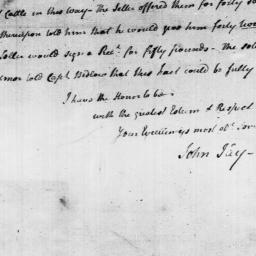 Cattle in this Way - The Seller offered them for forty so
thereupon told him that he would give him forty
Seller would sign a Rect. for fifty pounds - The sel
told Capt. Bedlow that this Fact could be fully
I have the Honor to be
with the greatest Esteem & Respect
Your Excellency's most obt. Serv
John Jay -